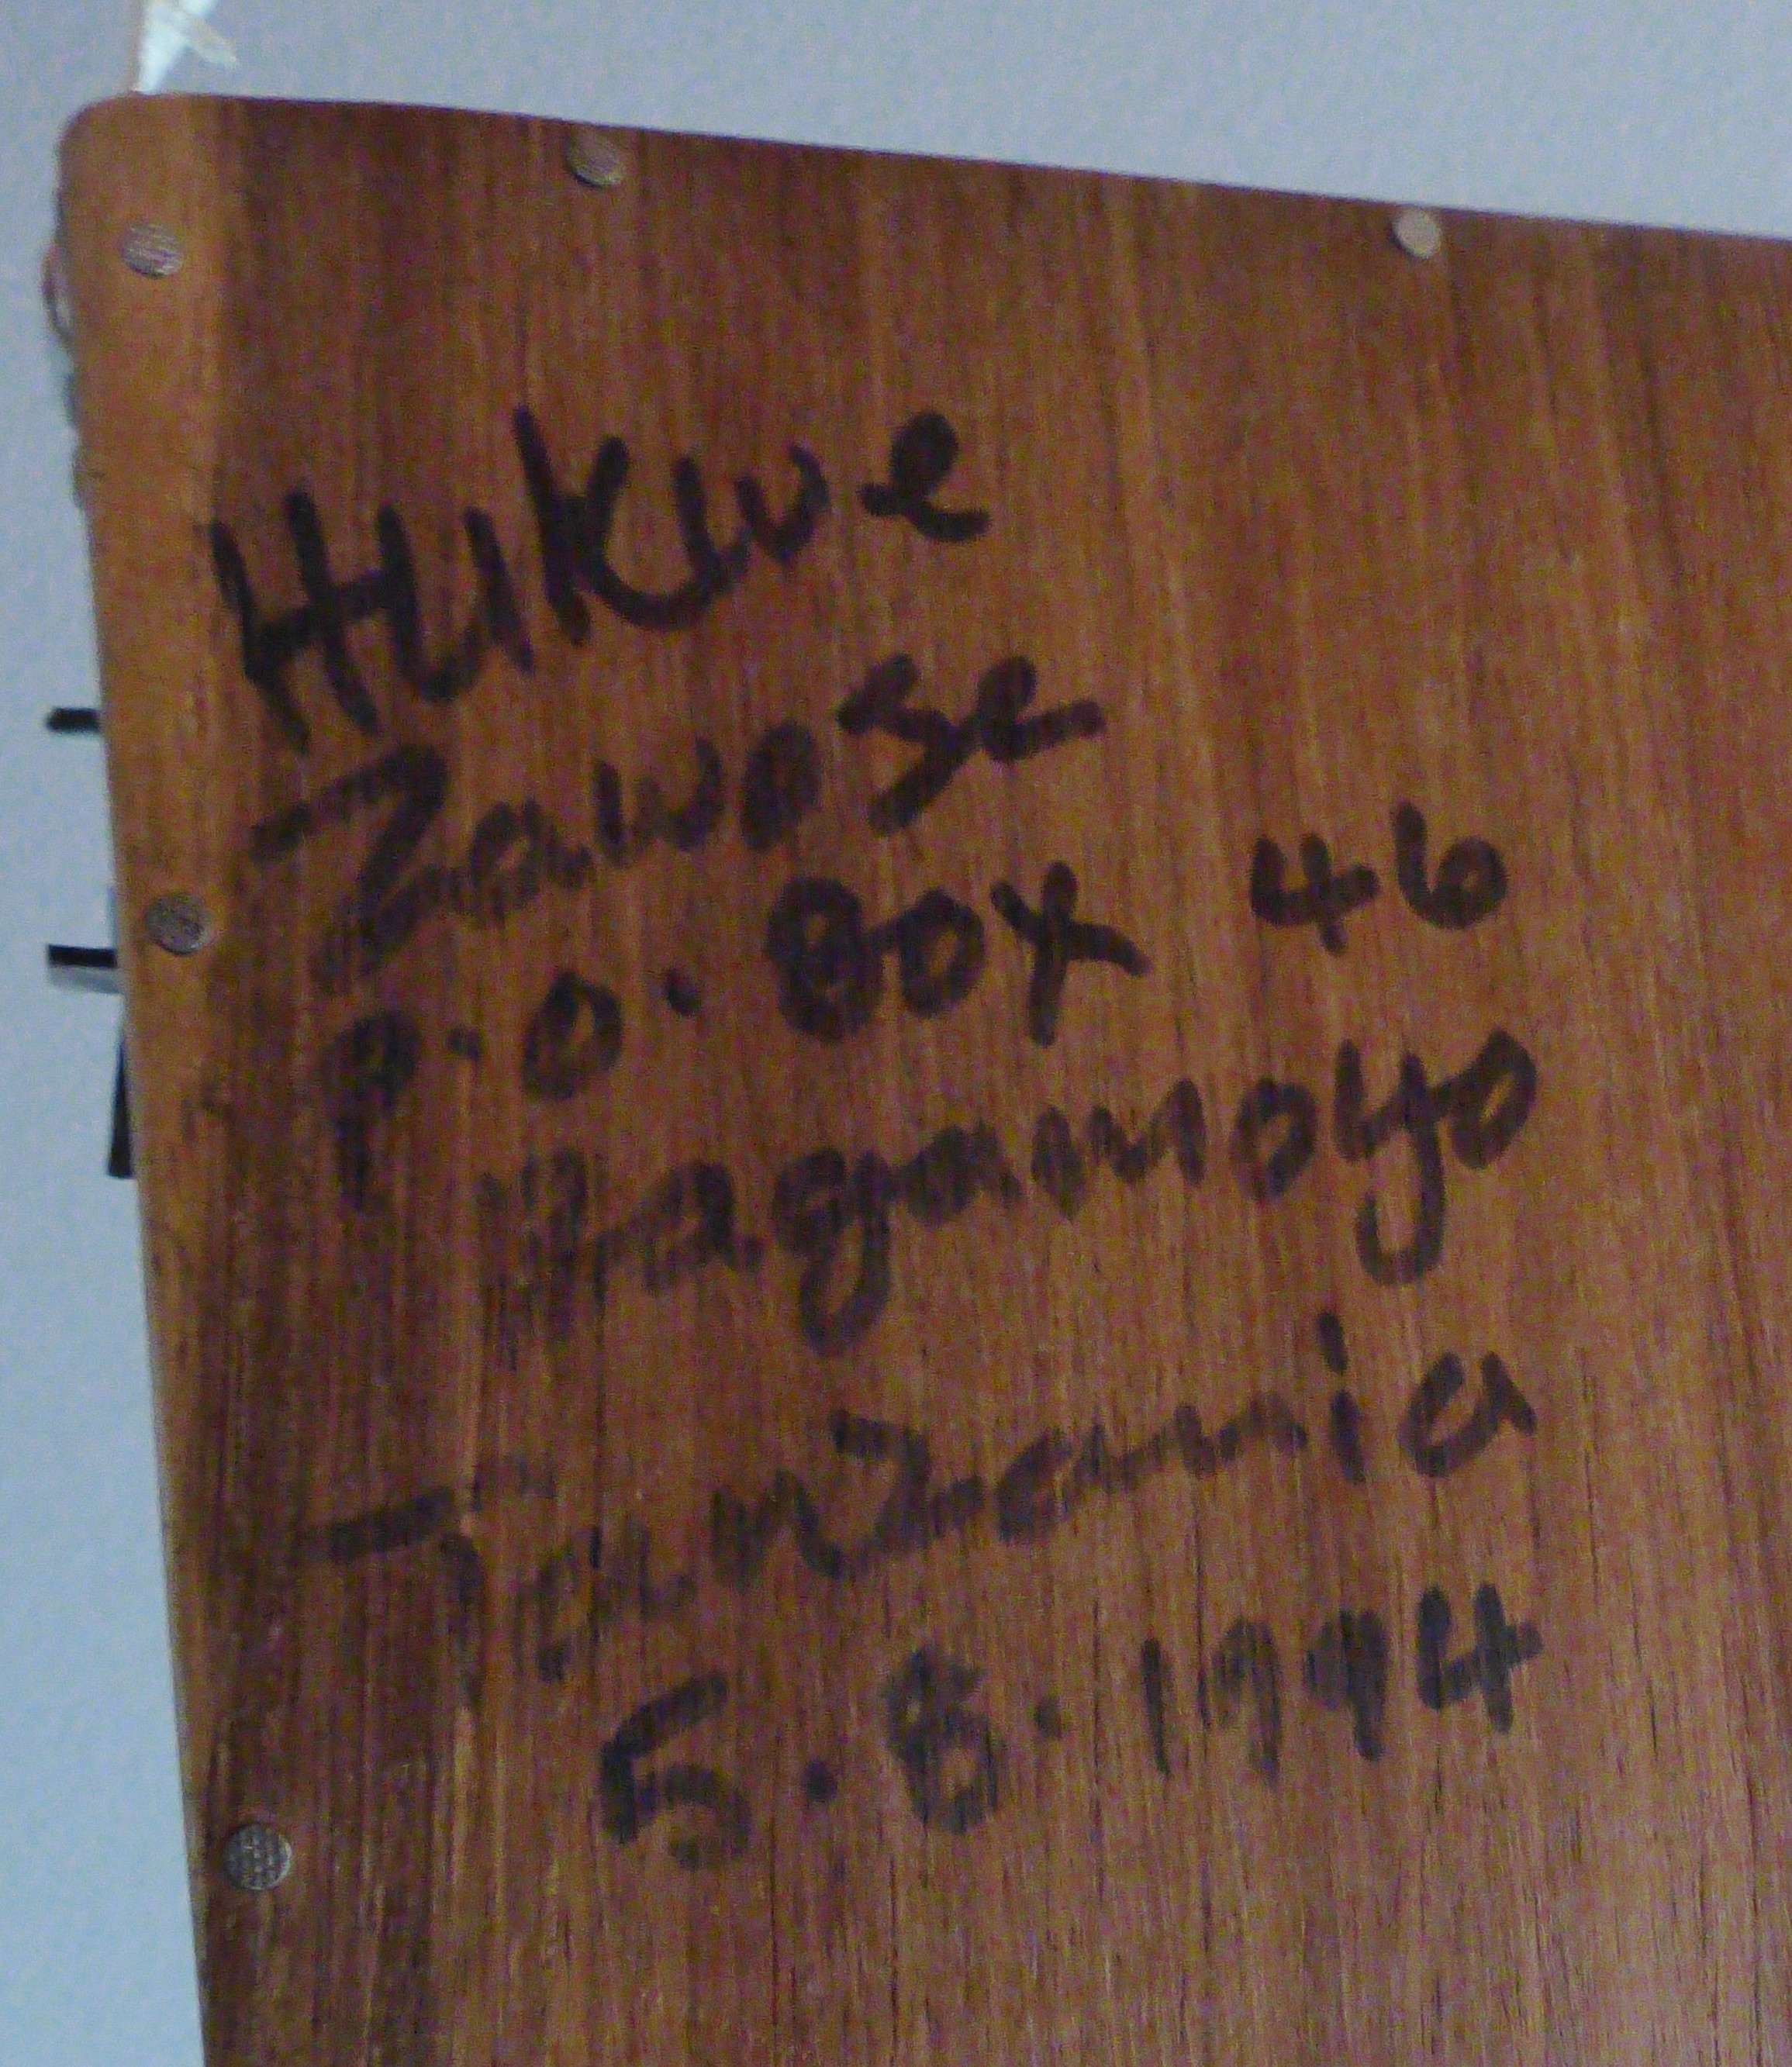 HUKWE
Zawose
P.O. BOX 46
Bagamoyo
Tanzania
5.8.1994